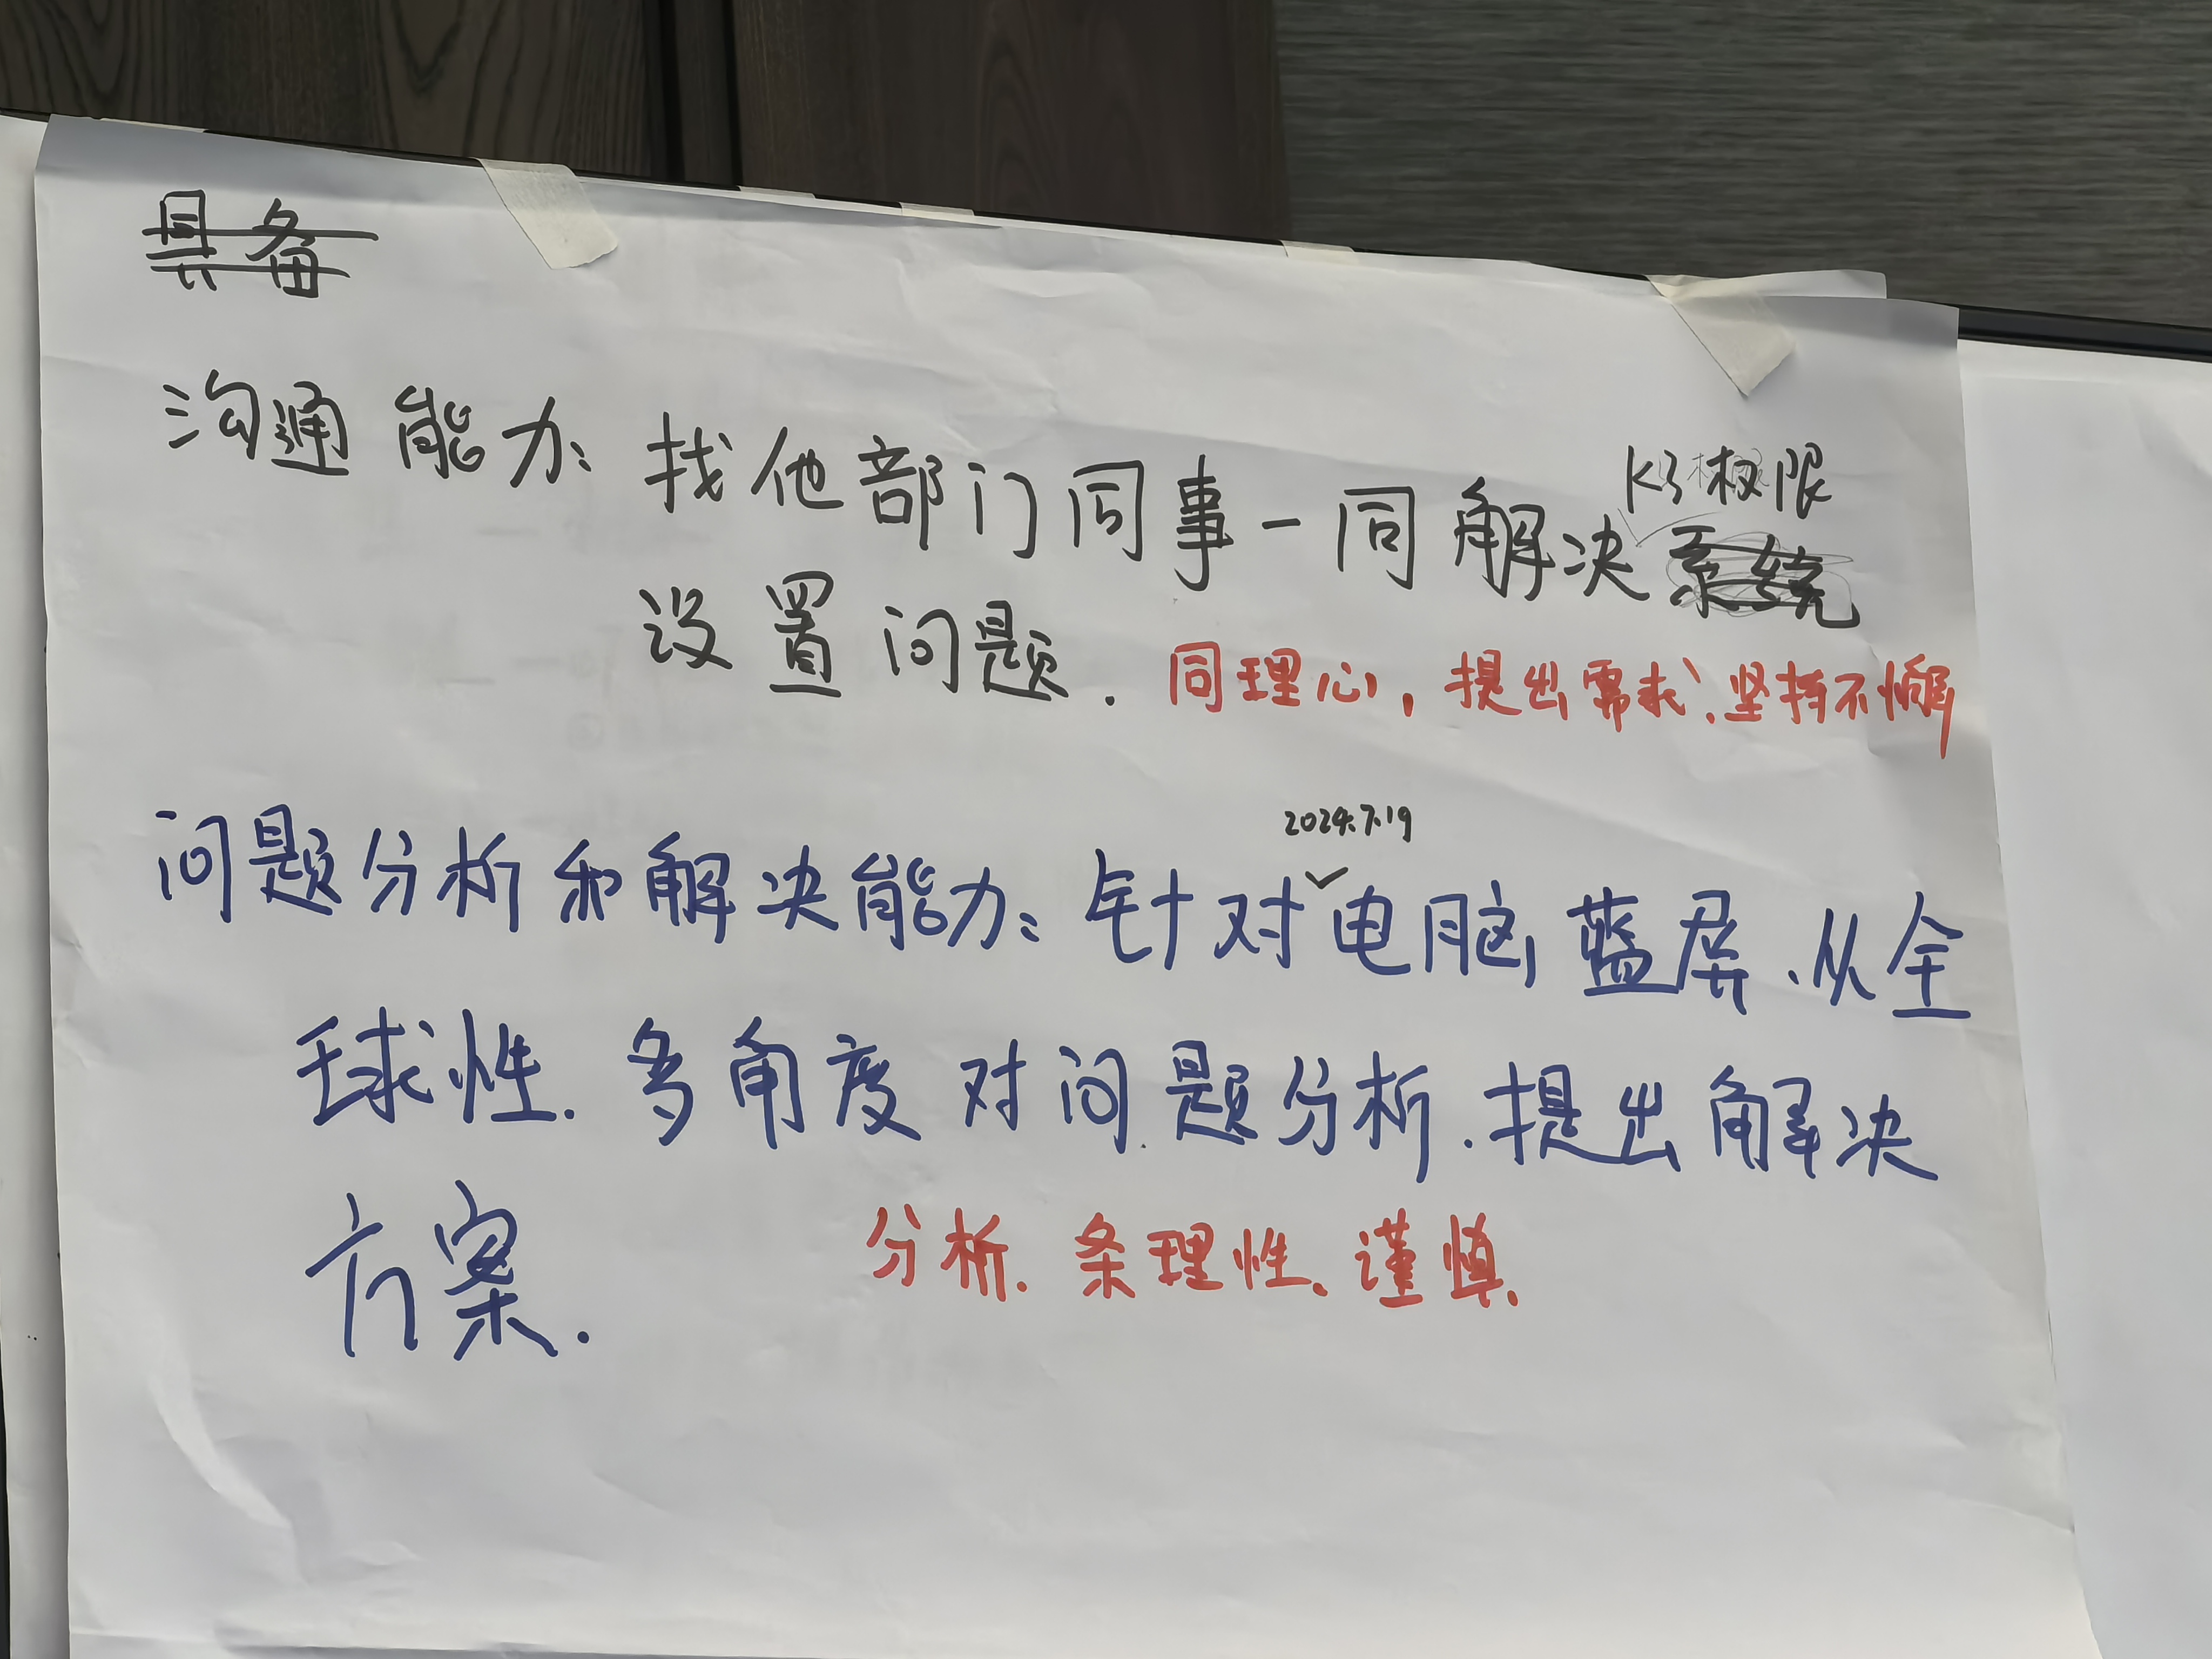 具备
K3权限
沟通能力: 找他部门同事一同解决系统
设置问题.
同理心, 提出需求、坚持不懈
2024.7.19
问题分析和解决能力: 针对电脑蓝屏、从全
球性、多角度对问题分析、提出解决
方案.
分析、条理性、谨慎.